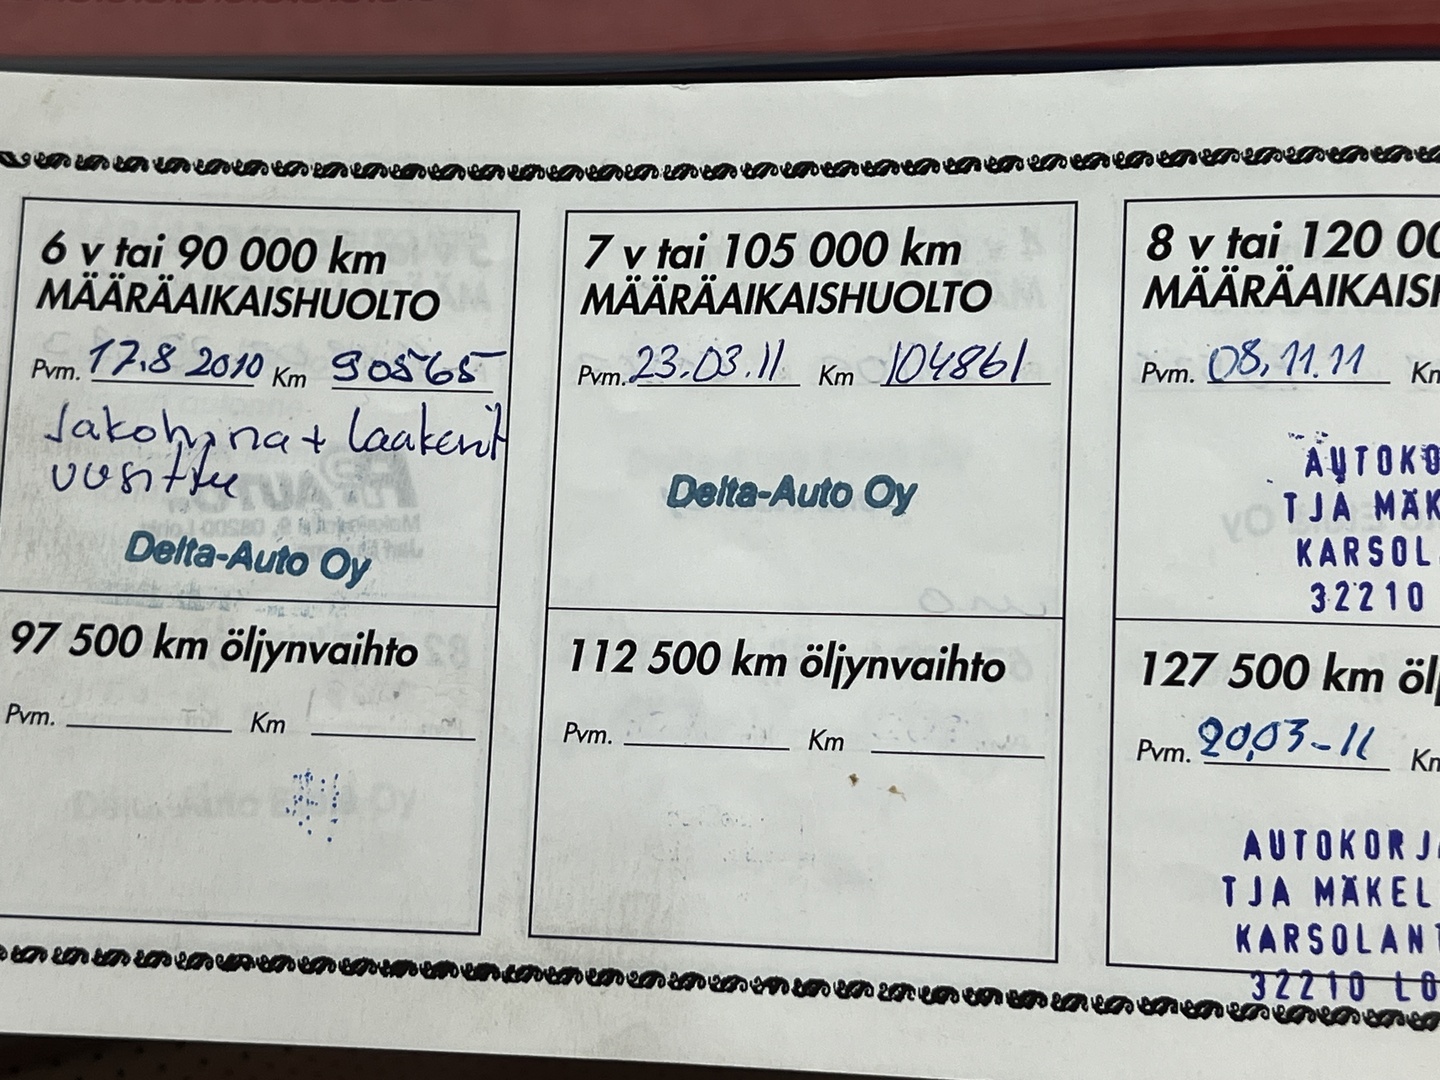 6 v tai 90 000 km
MÄÄRÄAIKAISHUOLTO
Pvm. 17.8 2010 Km 90565
Jakohihna + Laakerit
uusittu
Delta-Auto Oy
97 500 km öljynvaihto
Pvm. Km
7 v tai 105 000 km
MÄÄRÄAIKAISHUOLTO
Pvm. 23.03.11 Km 104861
Delta-Auto Oy
112 500 km öljynvaihto
Pvm. Km
8 v tai 120 00
MÄÄRÄAIKAISH
Pvm. 08.11.11 Km
AUTOKO
TJA MÄK
KARSOL
32210
127 500 km öl
Pvm. 20.03-11 Km
AUTOKORJ
TJA MÄKEL
KARSOLANT
32210 LO